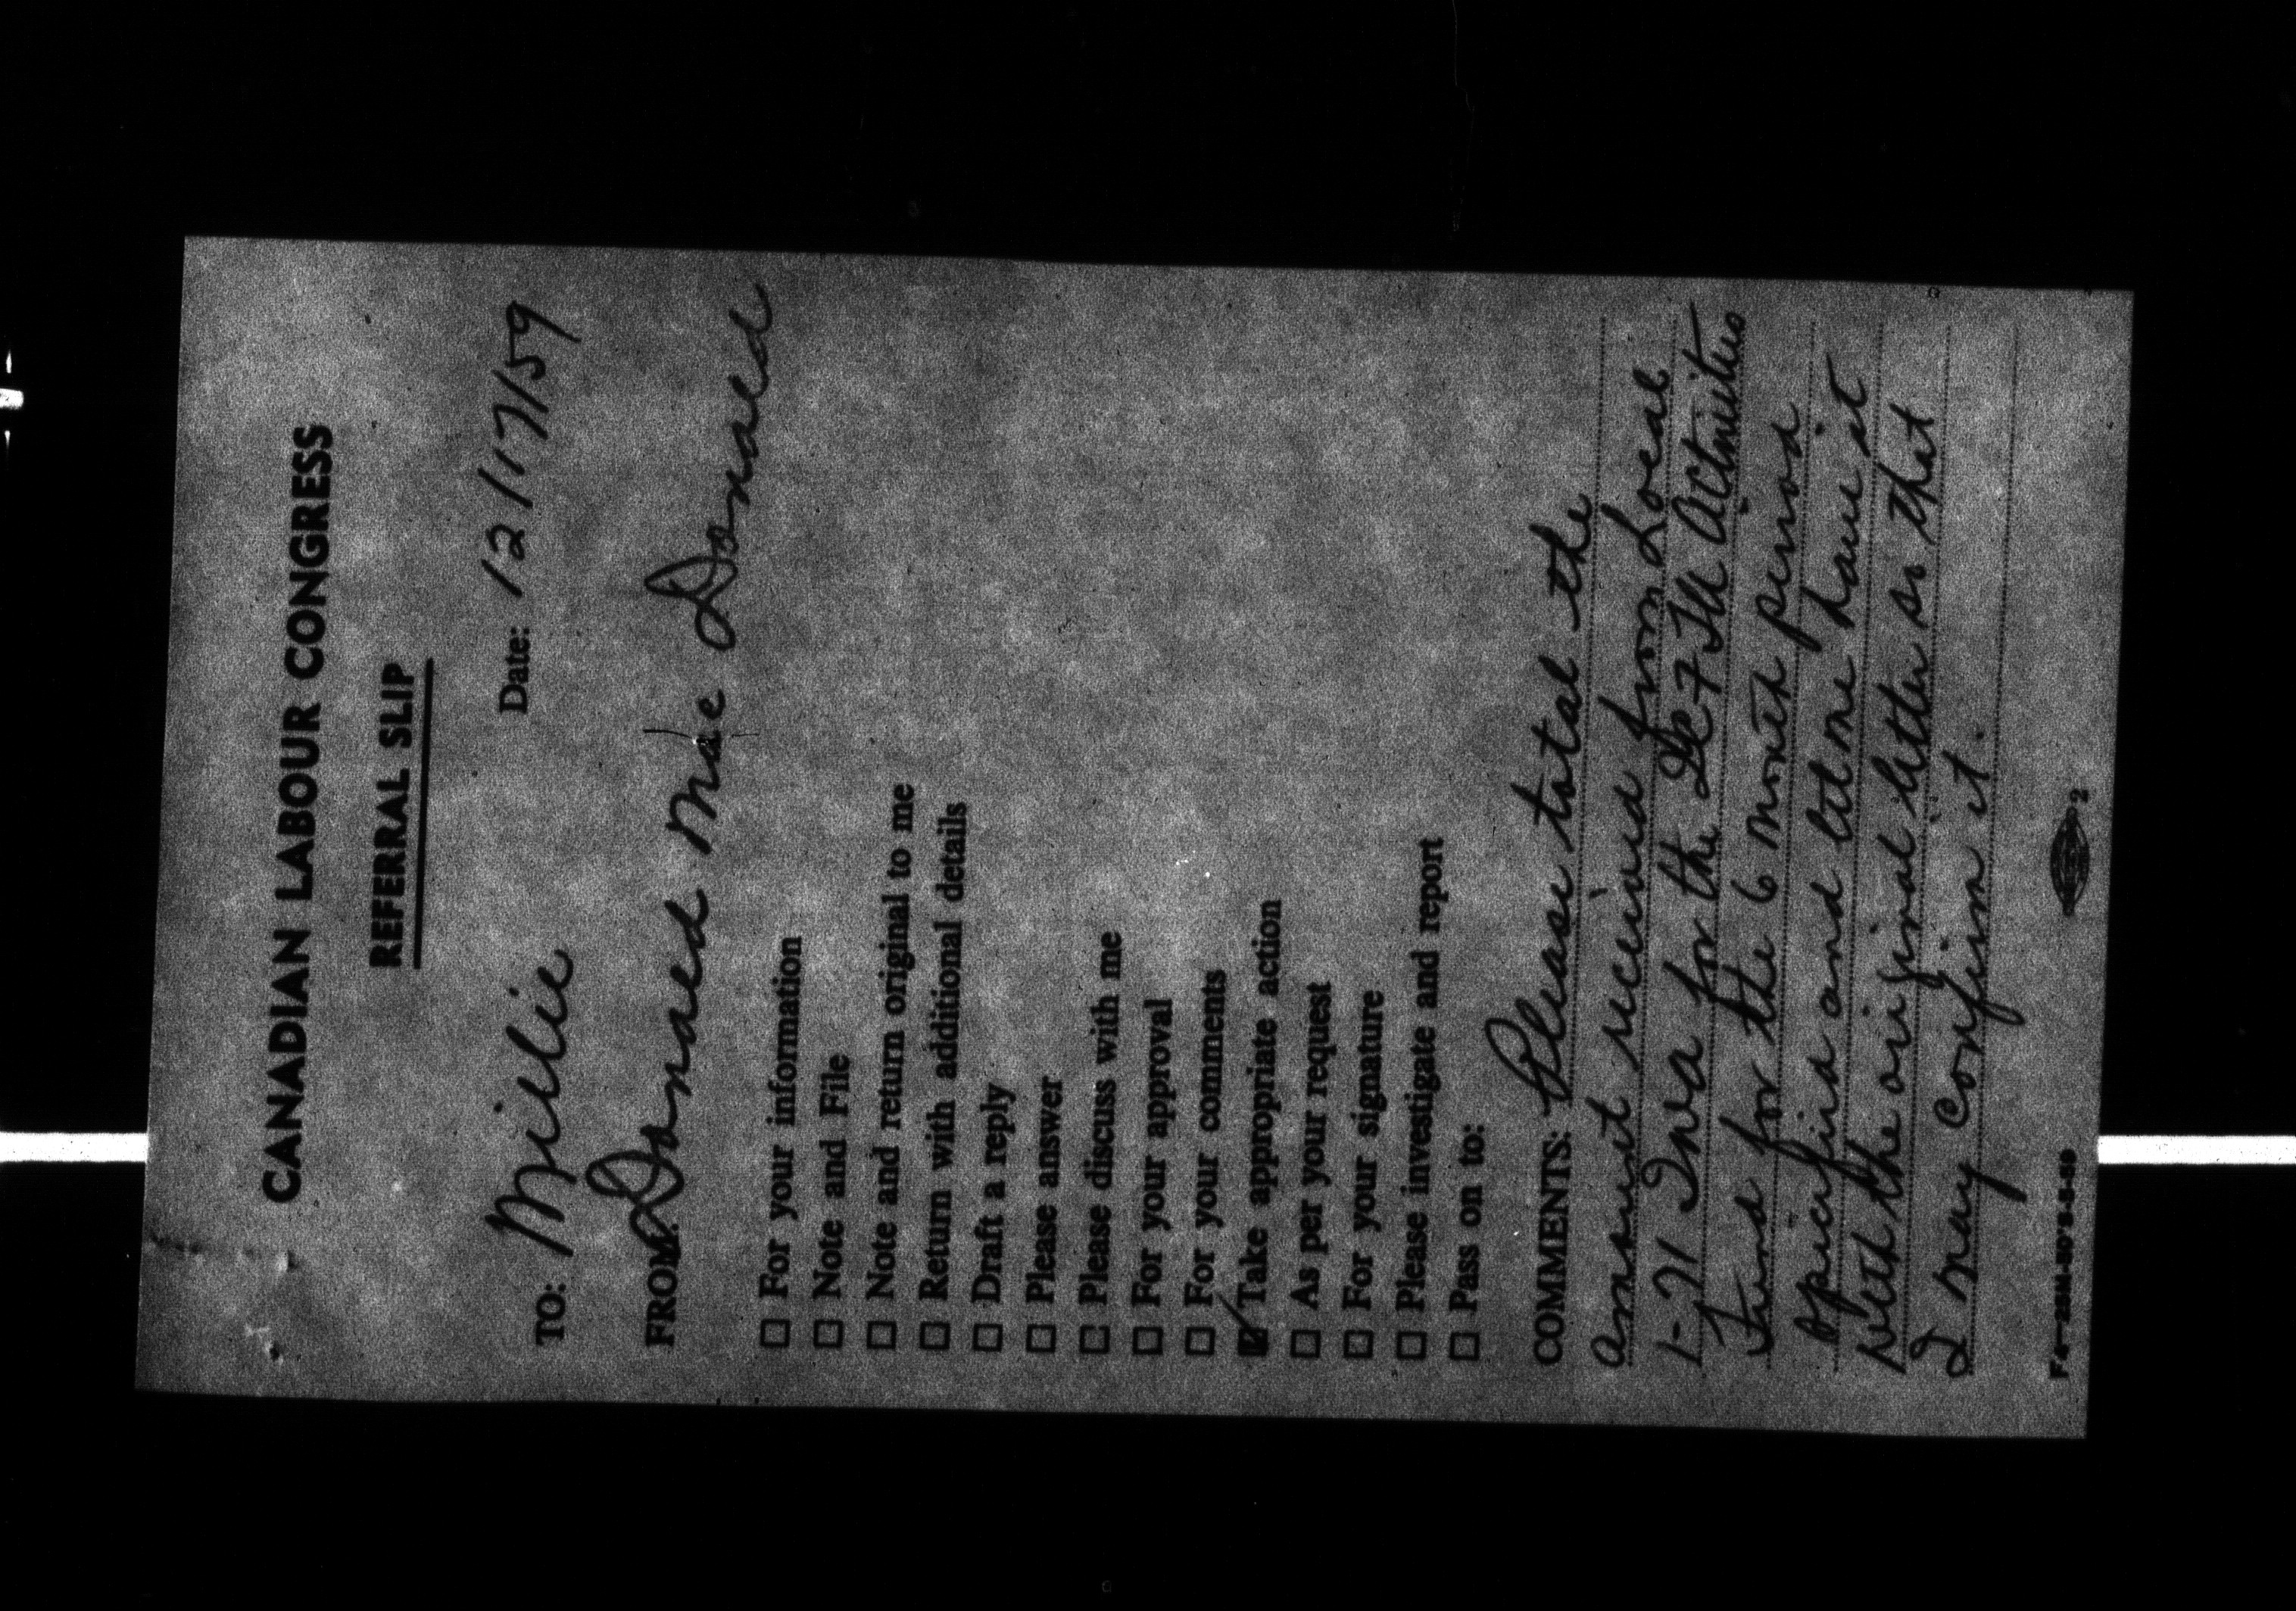 CANADIAN LABOUR CONGRESS
REFERRAL SLIP
Date: 12/17/59
TO: Millie
FROM: Donald Mac Donald
☐ For your information
☐ Note and File
☐ Note and return original to me
☐ Return with additional details
☐ Draft a reply
☐ Please answer
☐ Please discuss with me
☐ For your approval
☐ For your comments
☑ Take appropriate action
☐ As per your request
☐ For your signature
☐ Please investigate and report
☐ Pass on to:
COMMENTS: Please total the
amount received from Local
1-71 IWA for the Activities
Fund for the 6 month period
specified and let me have it
with the original letter so that
I may confirm it.
2